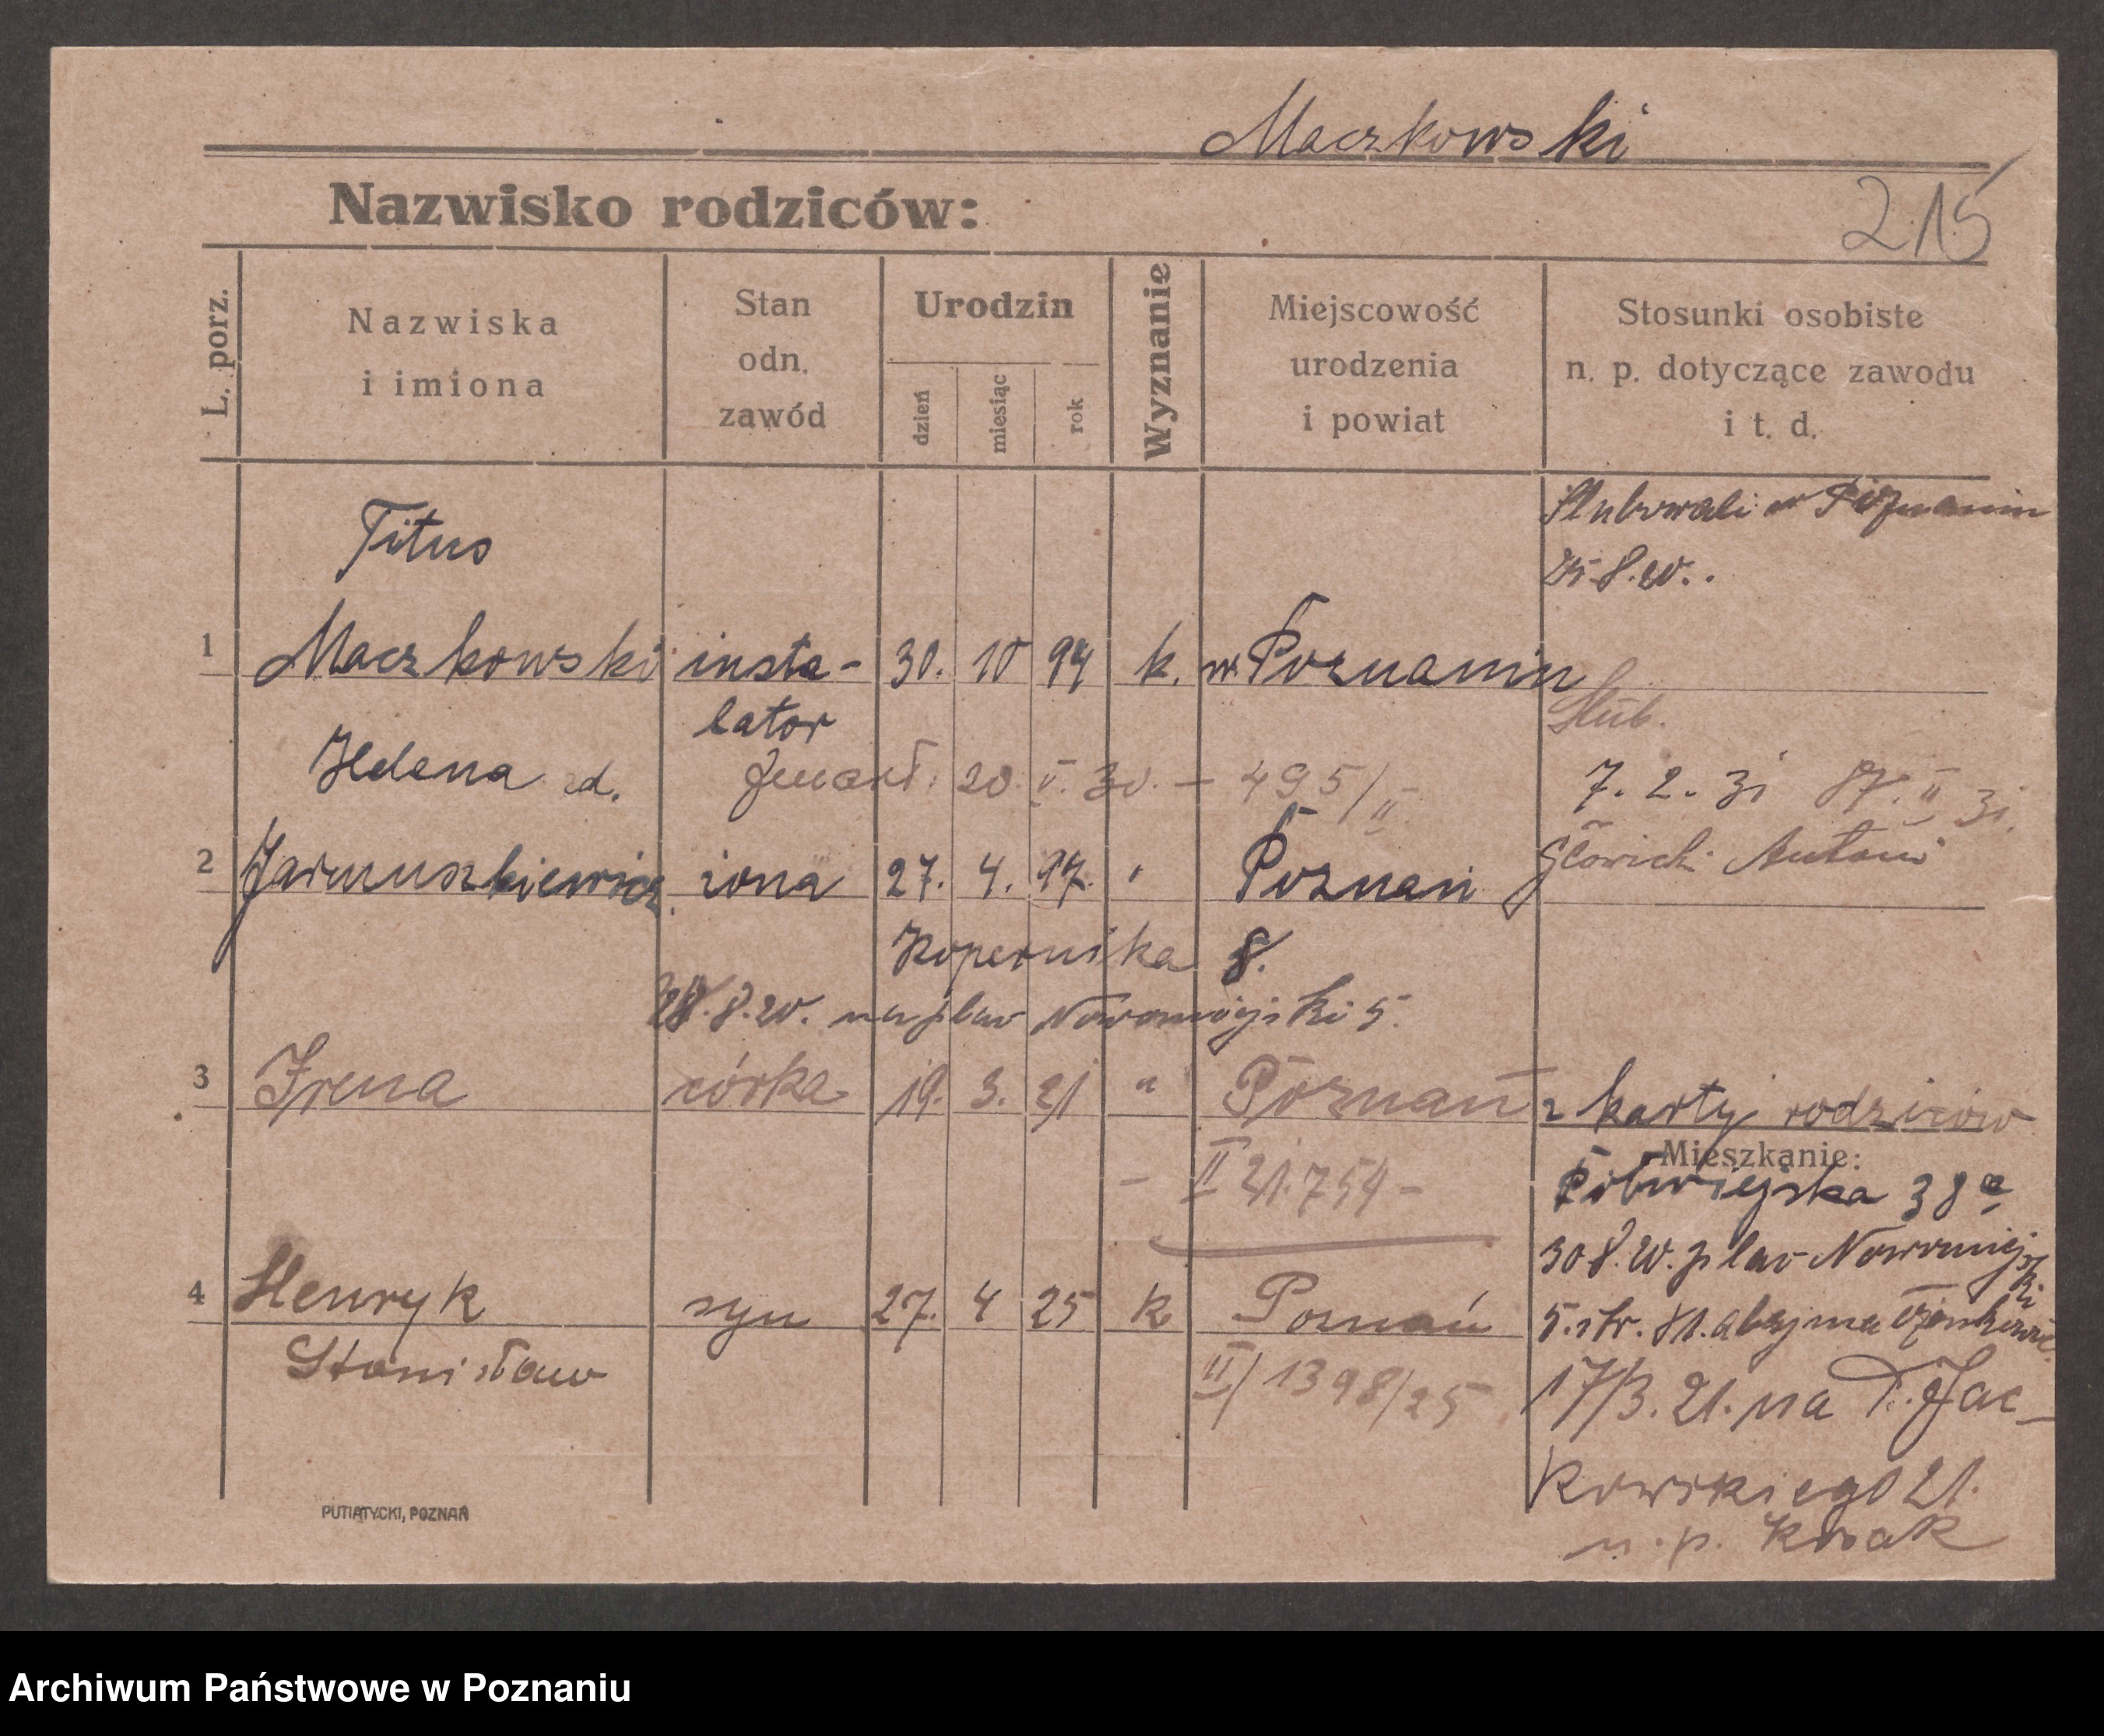 Maczkowski
Nazwisko rodziców:
215
L. porz.
Nazwiska
i imiona
Stan
odn.
zawód
Urodzin
dzień
miesiąc
rok
Wyznanie
Miejscowość
urodzenia
i powiat
Stosunki osobiste
n. p. dotyczące zawodu
i t. d.
Ślubowali w Poznaniu
8.20.
Titus
1 Maczkowski insta- 30. 10 94 k. w Poznaniu
lator
Ślub.
Helena zd. zmarł. 20. V. 30. - 495/II 7. 2. 31 87. II 31.
2 Jarmuszkiewicz żona 27. 4. 97. " Poznań Antoni
Kopernika 8.
28.8.20. na plac Nowomiejski 5.
3 Irena córka 19. 3. 21 " Poznań z karty rodziców
Mieszkanie:
- II 21.754 - Półwiejska 38a
30 8. 20. plac Nowomiejski
4 Henryk syn 27. 4 25 k Poznań 5. str.
Stanisław II/1398/25 17/3. 21. na T. Jac-
kowskiego 21.
u. p. Kwak
PUTIATYCKI, POZNAŃ
Archiwum Państwowe w Poznaniu